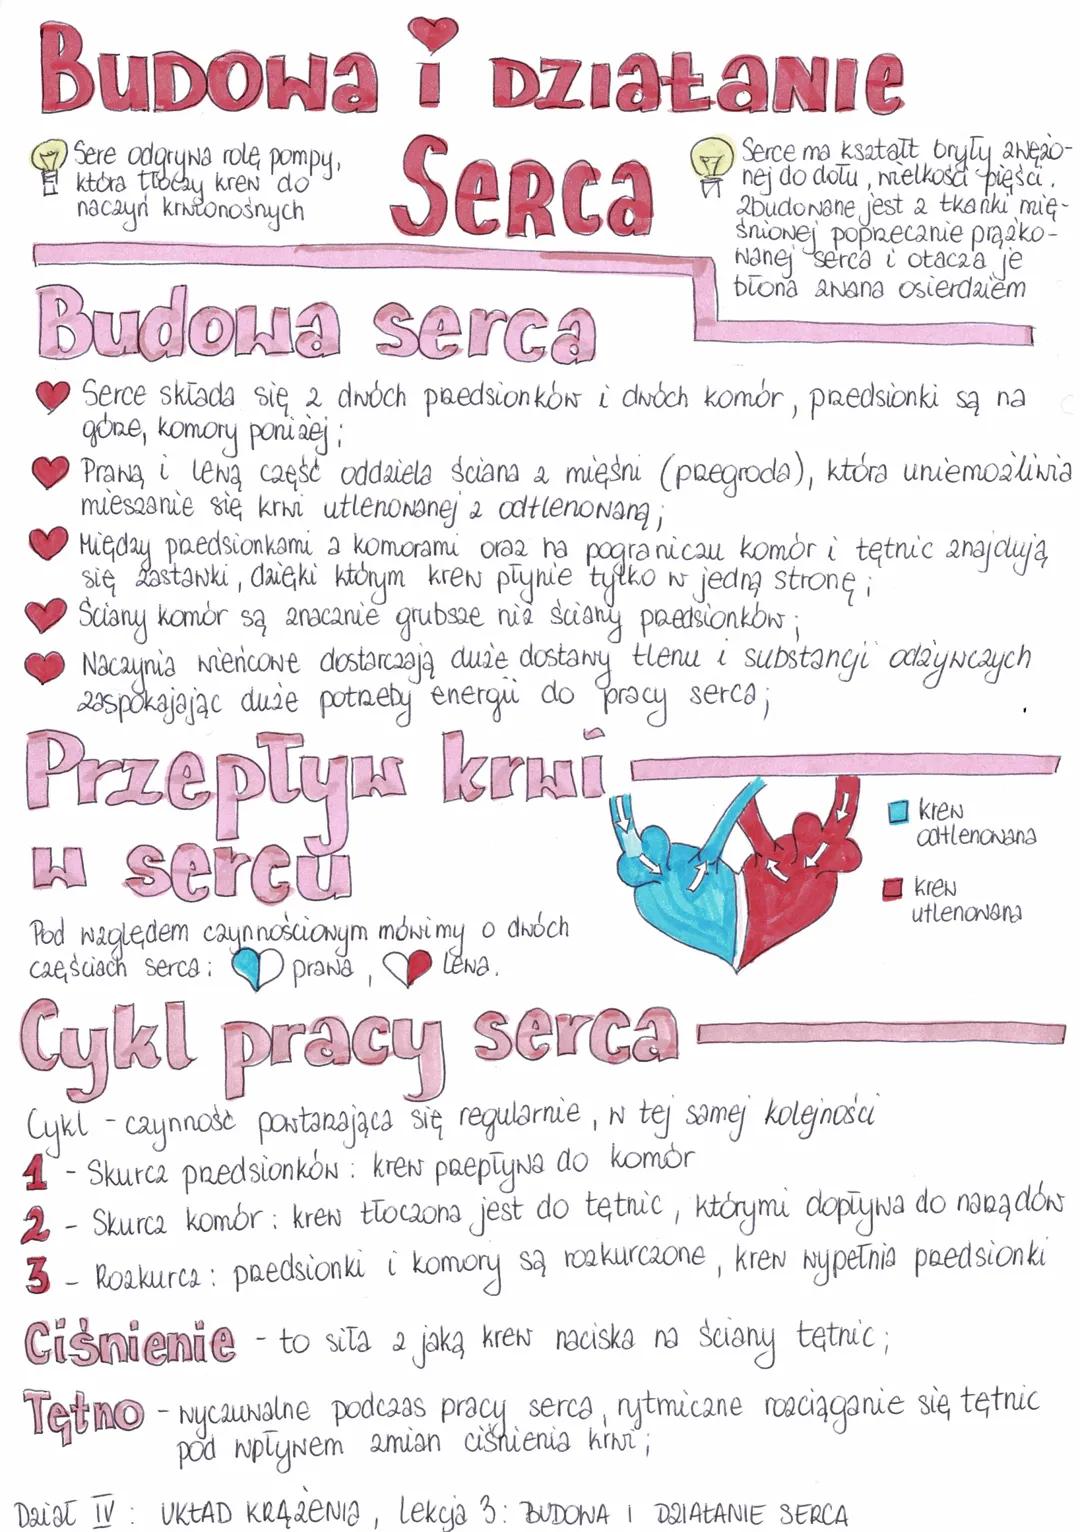 Budowa i działanie
Serca
Sere odgrywa rolę pompy,
która tłoczy krew do
naczyń krwionośnych
Serce ma kształt bryły zwężo-
nej do dołu, wielkości pięści.
Zbudowane jest z tkanki mię-
śniowej poprzecznie prążko-
wanej serca i otacza je
błona zwana osierdziem
Budowa serca
Serce składa się z dwóch przedsionków i dwóch komór, przedsionki są na
górze, komory poniżej;
Prawą i lewą część oddziela ściana z mięśni (przegroda), która uniemożliwia
mieszanie się krwi utlenowanej z odtlenowaną;
Między przedsionkami a komorami oraz na pograniczu komór i tętnic znajdują
się zastawki, dzięki którym krew płynie tylko w jedną stronę;
Ściany komór są znacznie grubsze niż ściany przedsionków;
Naczynia wieńcowe dostarczają duże dostawy tlenu i substancji odżywczych
zaspokajając duże potrzeby energii do pracy serca;
Przepływ krwi
w sercu
krew
odtlenowana
krew
utlenowana
Pod względem czynnościowym mówimy o dwóch
częściach serca: prawa, lewa.
Cykl pracy serca
Cykl - czynność powtarzająca się regularnie, w tej samej kolejności
1 - Skurcz przedsionków: krew przepływa do komór
2 - Skurcz komór: krew tłoczona jest do tętnic, którymi dopływa do narządów
3 - Rozkurcz: przedsionki i komory są rozkurczone, krew wypełnia przedsionki
Ciśnienie - to siła z jaką krew naciska na ściany tętnic;
Tętno - wyczuwalne podczas pracy serca, rytmiczne rozciąganie się tętnic
pod wpływem zmian ciśnienia krwi;
Dział IV: UKŁAD KRĄŻENIA, Lekcja 3: BUDOWA I DZIAŁANIE SERCA